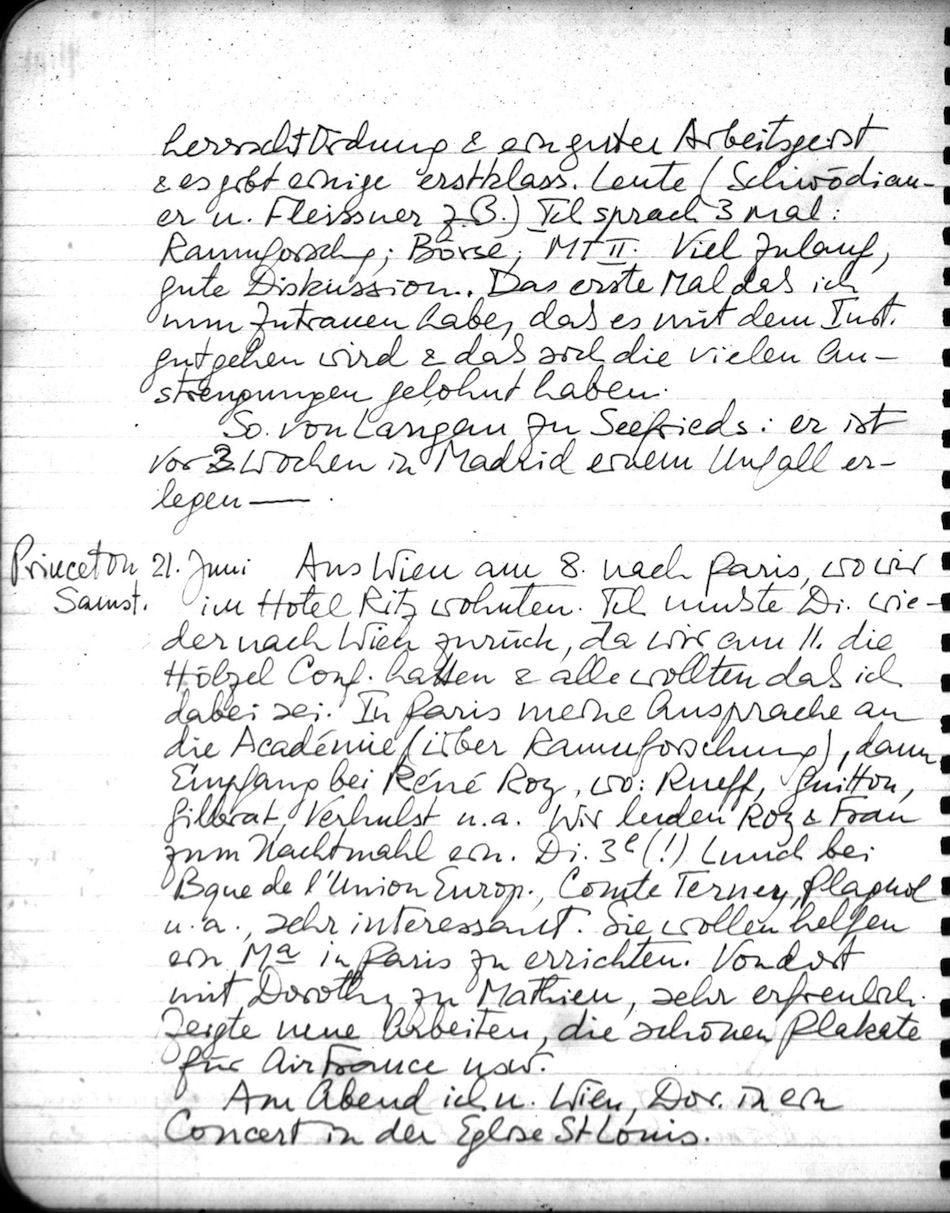 herrscht Ordnung & ein guter Arbeitsgeist
& es gibt einige erstklass. Leute (Schwödiau-
er u. Fleissner z.B.) Ich sprach 3 mal:
Raumforschg; Börse; MT II. Viel Zulauf,
gute Diskussion. Das erste Mal das ich
nun Zutrauen habe, das es mit dem Inst.
gut gehen wird & das sich die vielen An-
strengungen gelohnt haben.
So. von Langau zu Seefrieds: er ist
vor 3 Wochen in Madrid einem Unfall er-
legen — .
Princeton 21. Juni Aus Wien am 8. nach Paris, wo wir
Samst. im Hotel Ritz wohnten. Ich musste Di. wie-
der nach Wien zurück, da wir am 11. die
Hölzel Conf. hatten & alle wollten das ich
dabei sei. In Paris meine Ansprache an
die Académie (über Raumforschung), dann
Empfang bei Réné Roy, wo: Rueff, Guitton,
Gibrat, Verhulst u.a. Wir luden Roy & Frau
zum Nachtmahl ein. Di. 3e (!) Lunch bei
Bque de l'Union Europ., Comte Terney, Plagnol
u.a., sehr interessant. Sie wollen helfen
ein Ma in Paris zu errichten. Von dort
mit Dorothy zu Mathieu, sehr erfreulich.
Zeigte neue Arbeiten, die schönen Plakate
für Air France usw.
Am Abend ich n. Wien, Dor. in ein
Concert in der Eglise St Louis.